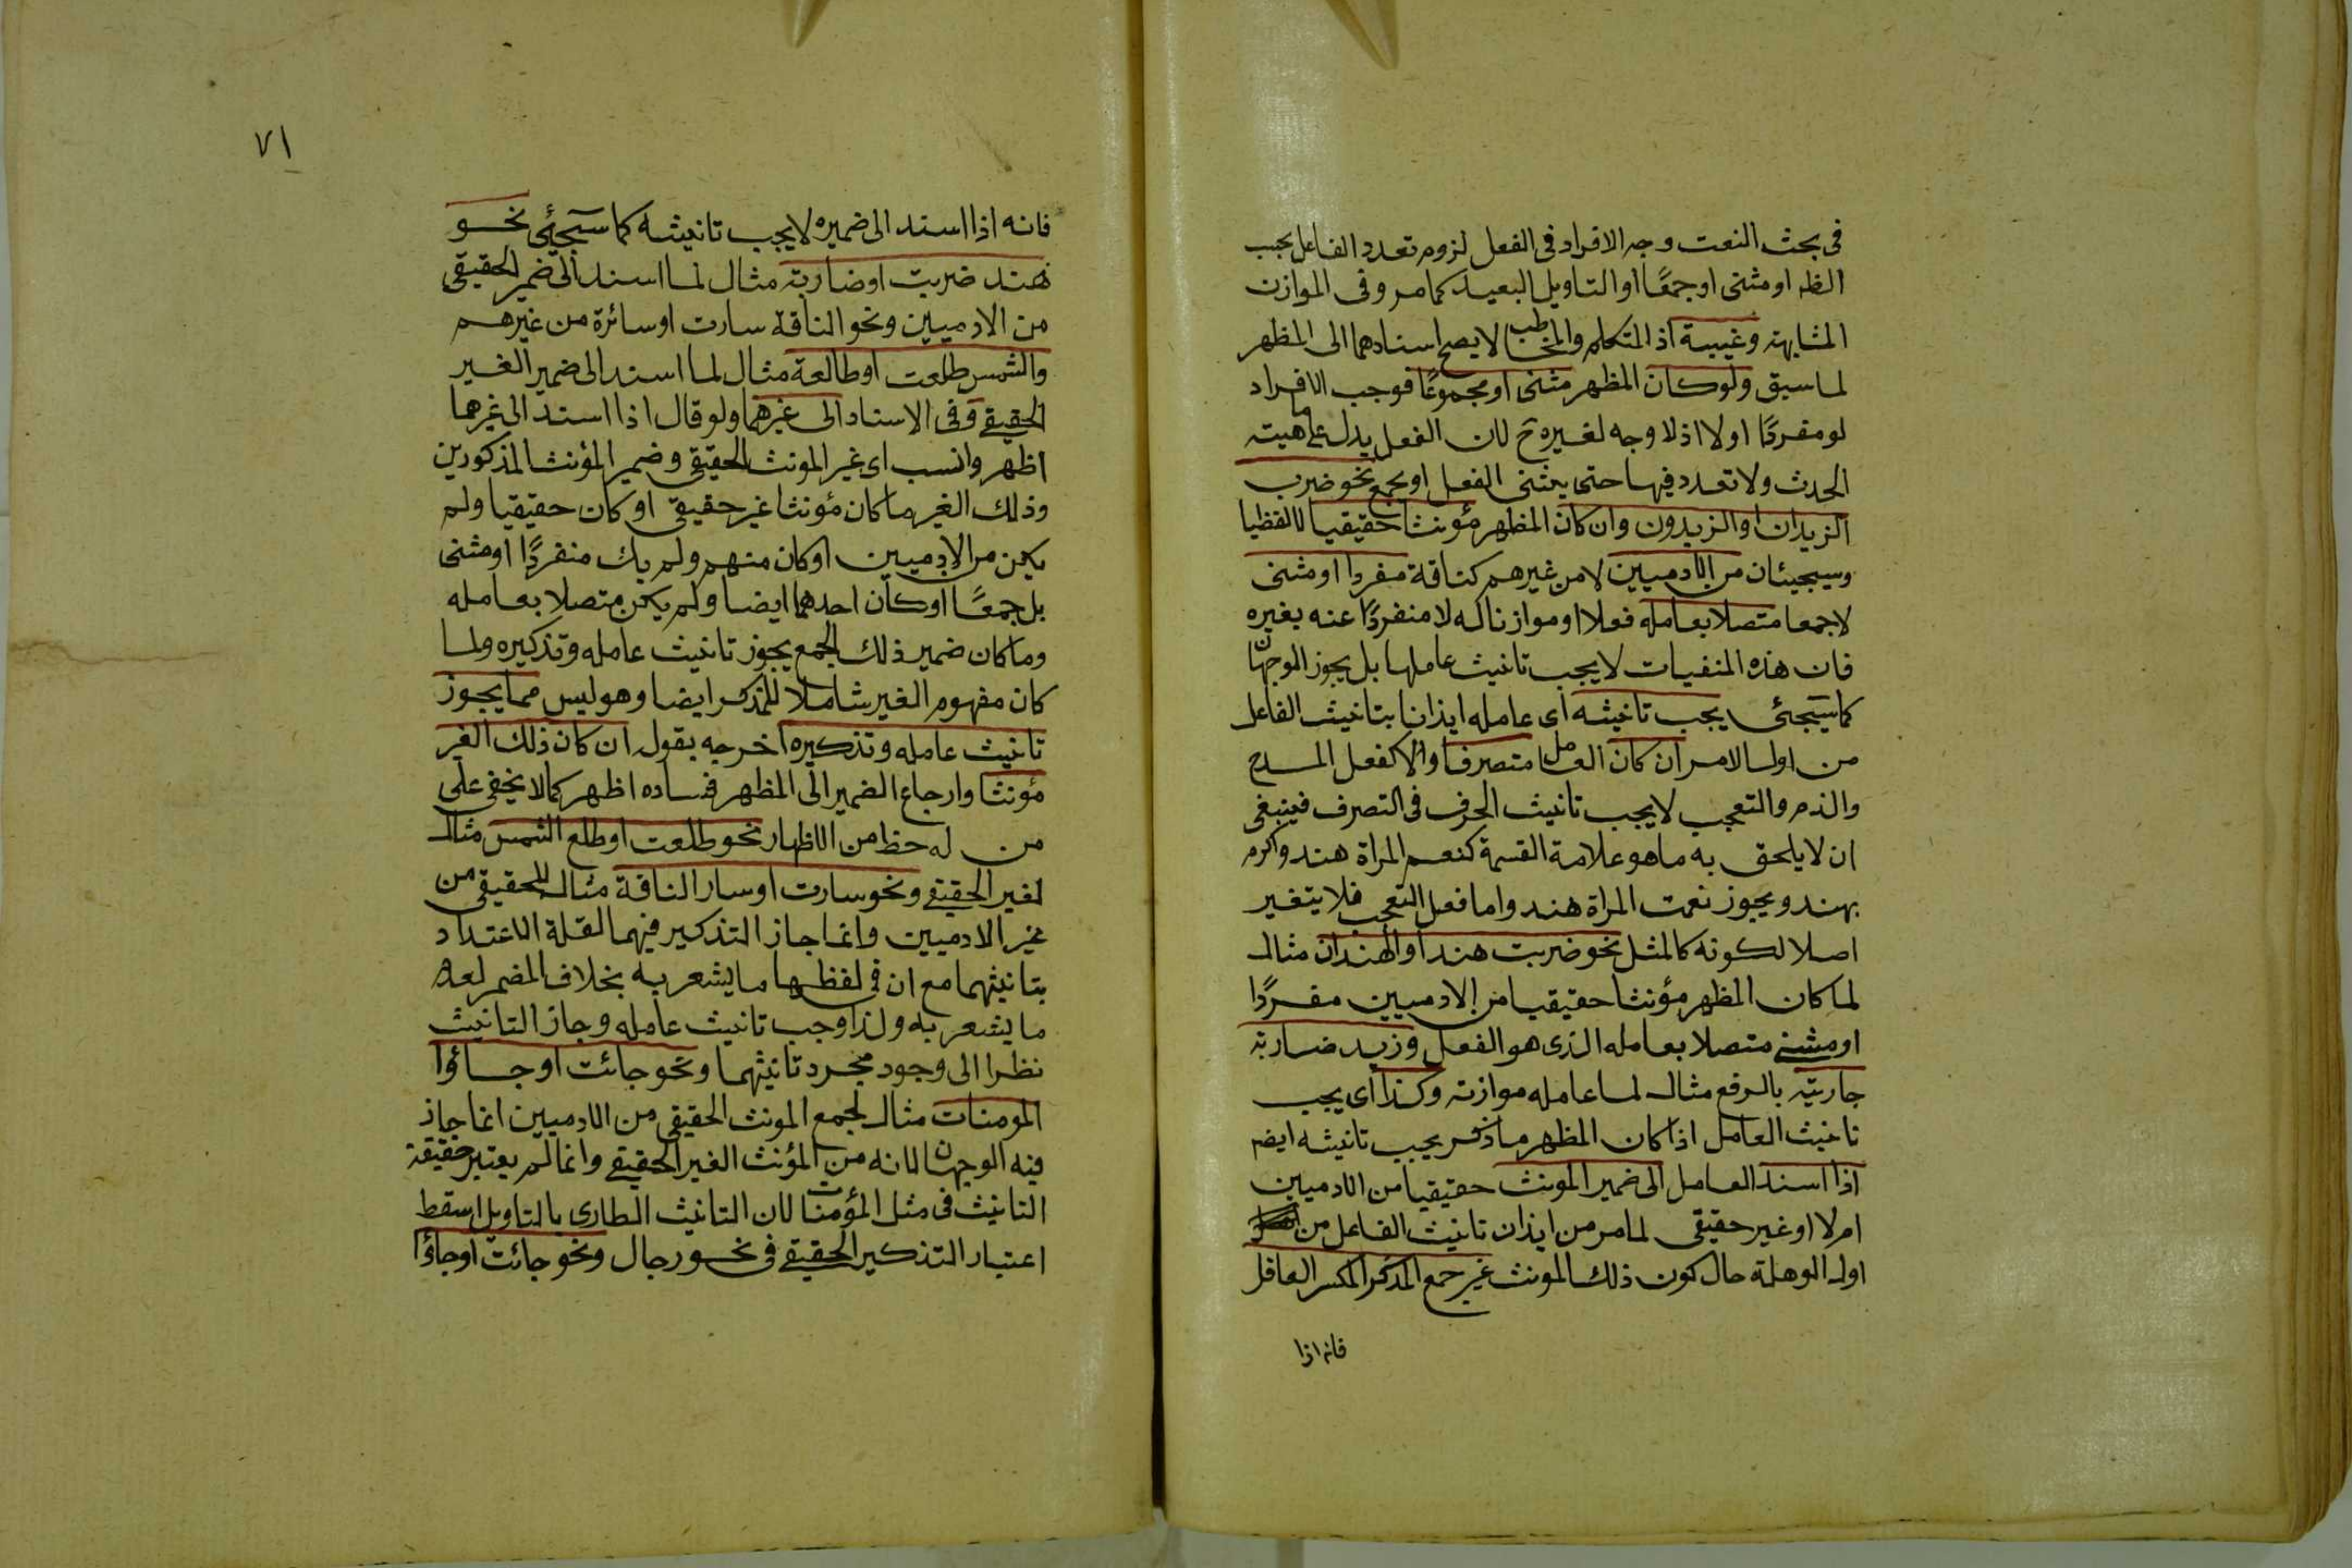 فى بحث النعت وجه الافراد فى الفعل لزوم تعدد الفاعل بحسب
الظ او مثنى او جمعًا او التاويل البعيد كما مر وفى الموازن
المشابهة وغيبية اذ المتكلم والمخاطب لا يصح اسنادهما الى المظهر
لما سبق ولو كان المظهر مثنى او مجموعًا فوجب الافراد
لو مفردًا اولا اذ لا وجه لغيره ح لان الفعل يدل على ماهية
الحدث ولا تعدد فيها حتى يثنى الفعل او يجمع نحو ضرب
الزيدان او الزيدون وان كان المظهر مؤنثا حقيقيا لا لفظيا
وسيجيئان من الآدميين لا من غيرهم كناقة مفردا او مثنى
لا جمعا متصلا بعامله فعلا او موازنا له لا منفردًا عنه بغيره
فان هذه المنفيات لا يجب تانيث عاملها بل يجوز الوجهان
كما سيجئى يجب تانيثه اى عامله ايذانا بتانيث الفاعل
من اول الامر ان كان العامل متصرفا والا كفعل المدح
والذم والتعجب لا يجب تانيث الحرف فى التصرف فينبغى
ان لا يلحق به ما هو علامة القسمة كنعم المراة هند واكرم
بهند ويجوز نعمت المراة هند واما فعل التعجب فلا يتغير
اصلا لكونه كالمثل نحو ضربت هند او الهندان مثال
لما كان المظهر مؤنثا حقيقيا من الادميين مفردًا
او مثنى متصلا بعامله الذى هو الفعل وزيد ضاربة
جاريته بالرفع مثال لما عامله موازنه وكذا اى يجب
تانيث العامل اذا كان المظهر ما ذكر يجب تانيثه ايضا
اذا اسند العامل الى ضمير المونث حقيقيا من الادميين
ام لا او غير حقيقى لما مر من ايذان تانيث الفاعل من
اول الوهلة حال كون ذلك المونث غير جمع المذكر المكسر العاقل
فانه اذا
٧١
فانه اذا اسند الى ضميره لا يجب تانيثه كما سيجئى نحو
هند ضربت او ضاربة مثال لما اسند الى ضمير الحقيقى
من الادميين ونحو الناقة سارت او سائرة من غيرهم
والشمس طلعت او طالعة مثال لما اسند الى ضمير الغير
الحقيقى وفى الاسناد الى غيرهما ولو قال اذا اسند الى غيرهما
اظهر وانسب اى غير المونث الحقيقى وضمير المؤنث المذكورين
وذلك الغير ما كان مؤنثا غير حقيقى او كان حقيقيا ولم
يكن من الادميين او كان منهم ولم يك منفردًا او مثنى
بل جمعًا او كان احدهما ايضا ولم يكن متصلا بعامله
وما كان ضمير ذلك الجمع يجوز تانيث عامله وتذكيره ولما
كان مفهوم الغير شاملا للمذكر ايضا وهو ليس مما يجوز
تانيث عامله وتذكيره اخرجه بقوله ان كان ذلك الغير
مؤنثا وارجاع الضمير الى المظهر فساده اظهر كما لا يخفى على
من له حظ من الاظهار نحو طلعت او طلع الشمس مثال
لغير الحقيقى ونحو سارت او سار الناقة مثال للحقيقى من
غير الادميين وانما جاز التذكير فيهما لقلة الاعتداد
بتانيثهما مع ان فى لفظها ما يشعر به بخلاف المضمر لعدم
ما يشعر به ولذا وجب تانيث عامله وجاز التانيث
نظرا الى وجود مجرد تانيثهما ونحو جائت او جاؤا
المومنات مثال لجمع المونث الحقيقى من الادميين انما جاز
فيه الوجهان لانه من المؤنث الغير الحقيقى وانما لم يعتبر حقيقة
التانيث فى مثل المؤمنات لان التانيث الطارى بالتاويل اسقط
اعتبار التذكير الحقيقى فى نحو رجال ونحو جائت او جاؤا